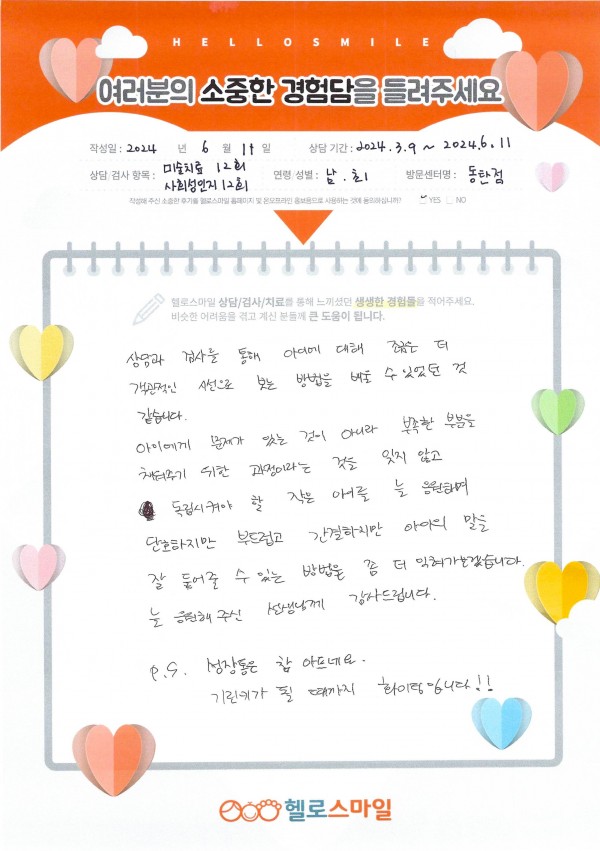 HELLOSMILE
여러분의 소중한 경험담을 들려주세요
작성일 : 2024 년 6 월 11 일 상담 기간 : 2024. 3. 9 ~ 2024. 6. 11
상담, 검사 항목 : 미술치료 12회 사회성인지 12회 연령, 성별 : 남 . 초1 방문센터명 : 동탄점
작성해 주신 소중한 후기를 헬로스마일 홈페이지 및 온오프라인 홍보용으로 사용하는 것에 동의하십니까? YES NO
헬로스마일 상담/검사/치료를 통해 느끼셨던 생생한 경험들을 적어주세요.
비슷한 어려움을 겪고 계신 분들께 큰 도움이 됩니다.
상담과 검사를 통해 아이에 대해 조금은 더
객관적인 시선으로 보는 방법을 배울 수 있었던 것
같습니다.
아이에게 문제가 있는 것이 아니라 부족한 부분을
채워주기 위한 과정이라는 것을 잊지 않고
독립시켜야 할 작은 아이를 늘 응원하며
단호하지만 부드럽고 간결하지만 아이의 말을
잘 들어줄 수 있는 방법을 좀 더 익혀가보겠습니다.
늘 응원해 주신 선생님께 감사드립니다.
P.S. 성장통은 참 아프네요.
기린키가 될 때까지 화이팅입니다!!
헬로스마일